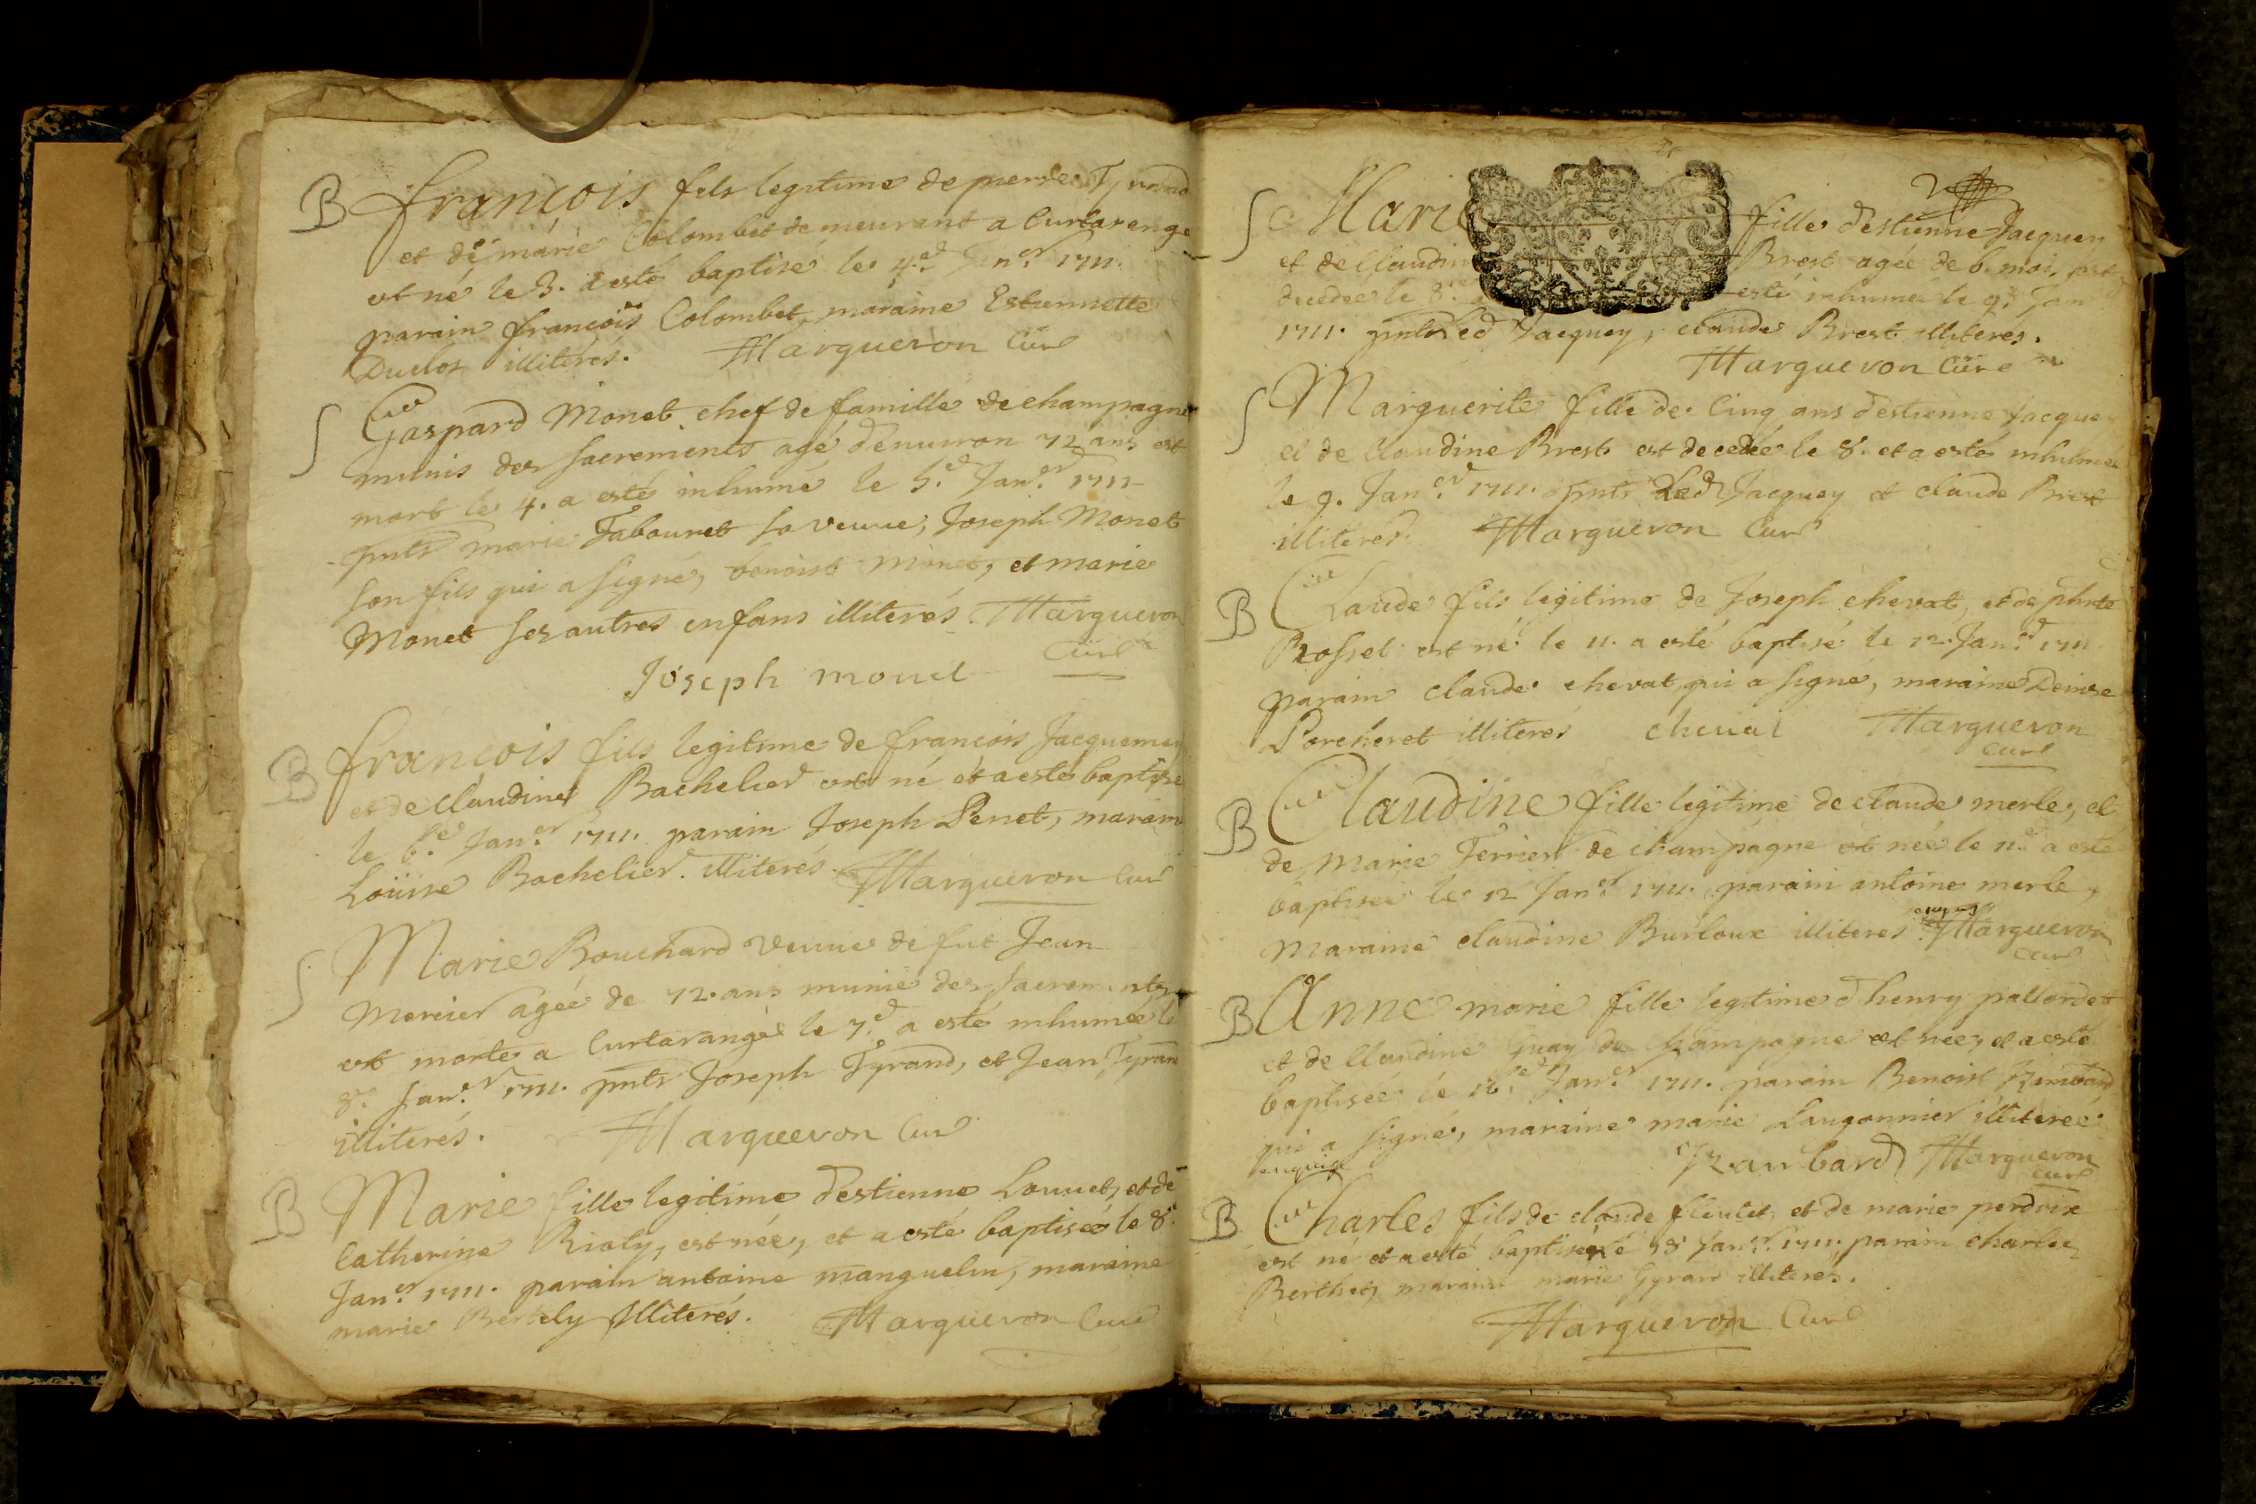 B François fils legitime de pierre Tyrand
et de marie Colombet demeurant a Curtarenge
est né le 3. a esté baptisé le 4.e Jan.er 1711.
parain françois Colombet, maraine Estiennette
Duclos illiterés. Margueron Curé
S Gaspard Monet chef de famille de champagne
munis des sacrements agé denuiron 72 ans est
mort le 4. a esté inhumé le 5.e Jan.er 1711
pnts marie Tabouret sa veuue, Joseph Monet
son fils qui a signé, benoist Monet, et marie
Monet ses autres enfans illiterés Margueron
Curé
Joseph monet
B François fils legitime de françois Jacquemin
et de Claudine Bachelier est né et a esté baptisé
le 6.e Jan.er 1711. parain Joseph Penet, maraine
Loüise Bachelier illiterés. Margueron Curé
S Marie Bouchard veuue de fut Jean
Mercier agée de 72. ans munie des sacrements
est morte a Curtarange le 7.e a esté inhumée le
8.e Jan.er 1711. pnts Joseph Tyrand, et Jean Tyrand
illiterés. Margueron Curé
B Marie fille legitime d'estienne Louuet, et de
Catherine Rialy, est née, et a esté baptisée le 8.e
Jan.er 1711. parain antoine manguelin, maraine
marie Bertely Illiterés. Margueron Curé
2
S Marie fille d'estienne Jacquey
et de Claudine Brest agée de 6. mois, est
decedee le 8.e a esté inhumée le 9.e Jan
1711. pnts led Jacquey, claude Brest illiterés.
Margueron Curé
S Marguerite fille de Cinq ans d'estienne Jacquey
et de Claudine Brest est decedée le 8. et a esté inhumée
le 9. Jan.er 1711. pnts Led Jacquey et claude Brest
illiterés. Margueron Curé
B Claude fils legitime de Joseph chevat, et de phte
Rosset est né le 11. a esté baptisé le 12. Jan.er 1711
parain claude chevat qui a signé, maraine Denise
Porcheret illiterés cheuat Margueron
Curé
B Claudine fille legitime de claude merle, et
de Marie Ferrier de champagne est née le 11.e a esté
baptisée le 12 Jan.er 1711. parain antoine merle,
Maraine claudine Burloux illiteres Margueron
Curé
B Anne marie fille legitime d'henry pallordet
et de Claudine Guay de Champagne est née, et a esté
baptisée le 16.e Jan.er 1711. parain Benoist Rambard
qui a signé, maraine marie Laugonnier illiterée
enquise Rambard Margueron
Curé
B Charles fils de claude fleutet, et de marie perdrix
est né et a esté baptisé le 18 Jan.er 1711. parain charles
Berthet, maraine marie Gyrard illiterés.
Margueron Curé